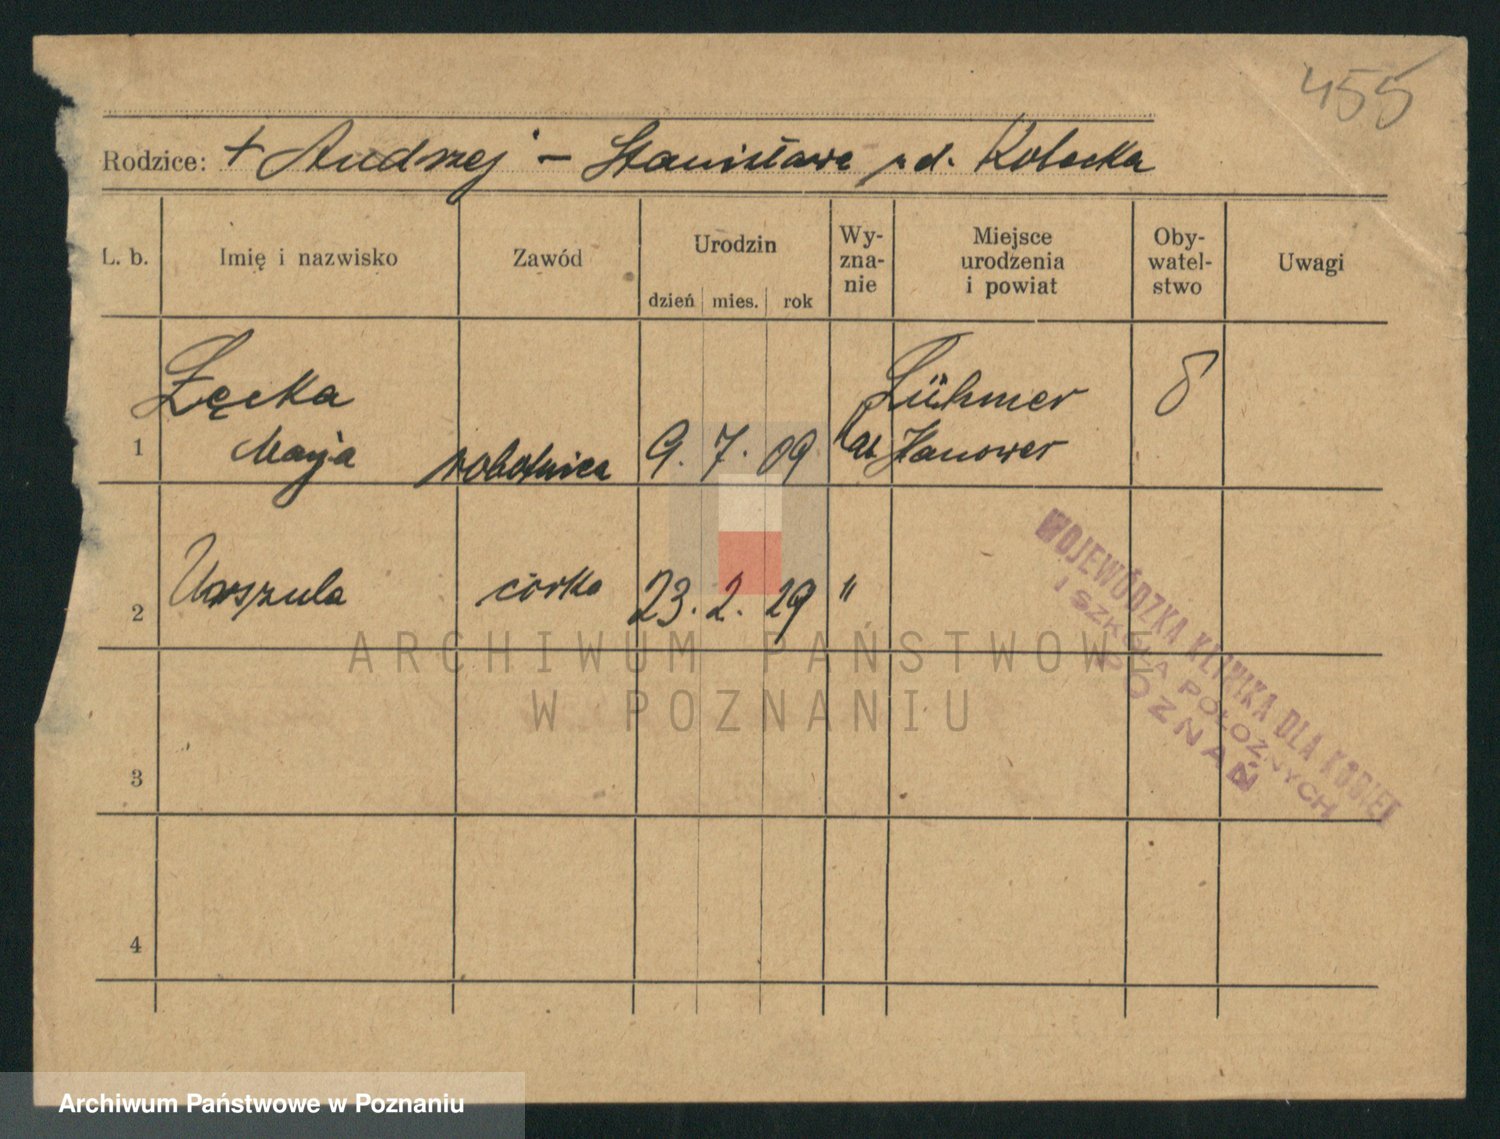 455
Rodzice: + Andrzej - Stanisława z d. Kolecka
L. b. Imię i nazwisko Zawód Urodzin dzień mies. rok Wy-zna-nie Miejsce urodzenia i powiat Oby-watel-stwo Uwagi
Łęcka Lühmer
1 Marja robotnica 9. 7. 09 kat Hanower
2 Urszula córka 23. 2. 29 "
3
4
WOJEWÓDZKA KLINIKA DLA KOBIET
I SZKOŁA POŁOŻNYCH
POZNAŃ
ARCHIWUM PAŃSTWOWE
W POZNANIU
Archiwum Państwowe w Poznaniu